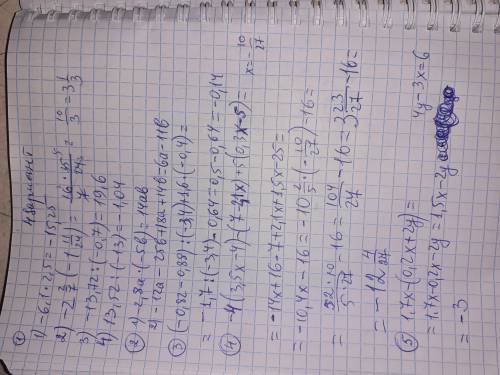 4 вариант
① 1) -6,1 · 2,5 = -15,25
2) -2 2/7 · (-1 11/24) = 16·35/7·24 = 10/3 = 3 1/3
3) -13,72 : (-0,7) = 19,6
4) 13,52 : (-13) = -1,04
② 1) -2,8a · (-5b) = 14ab
2) -12a - 25b + 18a + 14b = 6a - 11b
③ (-0,82 - 0,88) : (-3,4) + 1,6 · (-0,4) =
= -1,7 : (-3,4) - 0,64 = 0,5 - 0,64 = -0,14
④ -4(3,5x - 4) - (7 - 2,1x) + 5(0,3x - 5) = x = -10/27
= -14x + 16 - 7 + 2,1x + 1,5x - 25 =
= -10,4x - 16 = -10 2/5 · (-10/27) - 16 =
= 52·10/5·27 - 16 = 104/27 - 16 = 3 23/27 - 16 =
= -12 4/27
⑤ 1,7x - (0,2x + 2y) = 4y - 3x = 6
= 1,7x - 0,2x - 2y = 1,5x - 2y
= -3